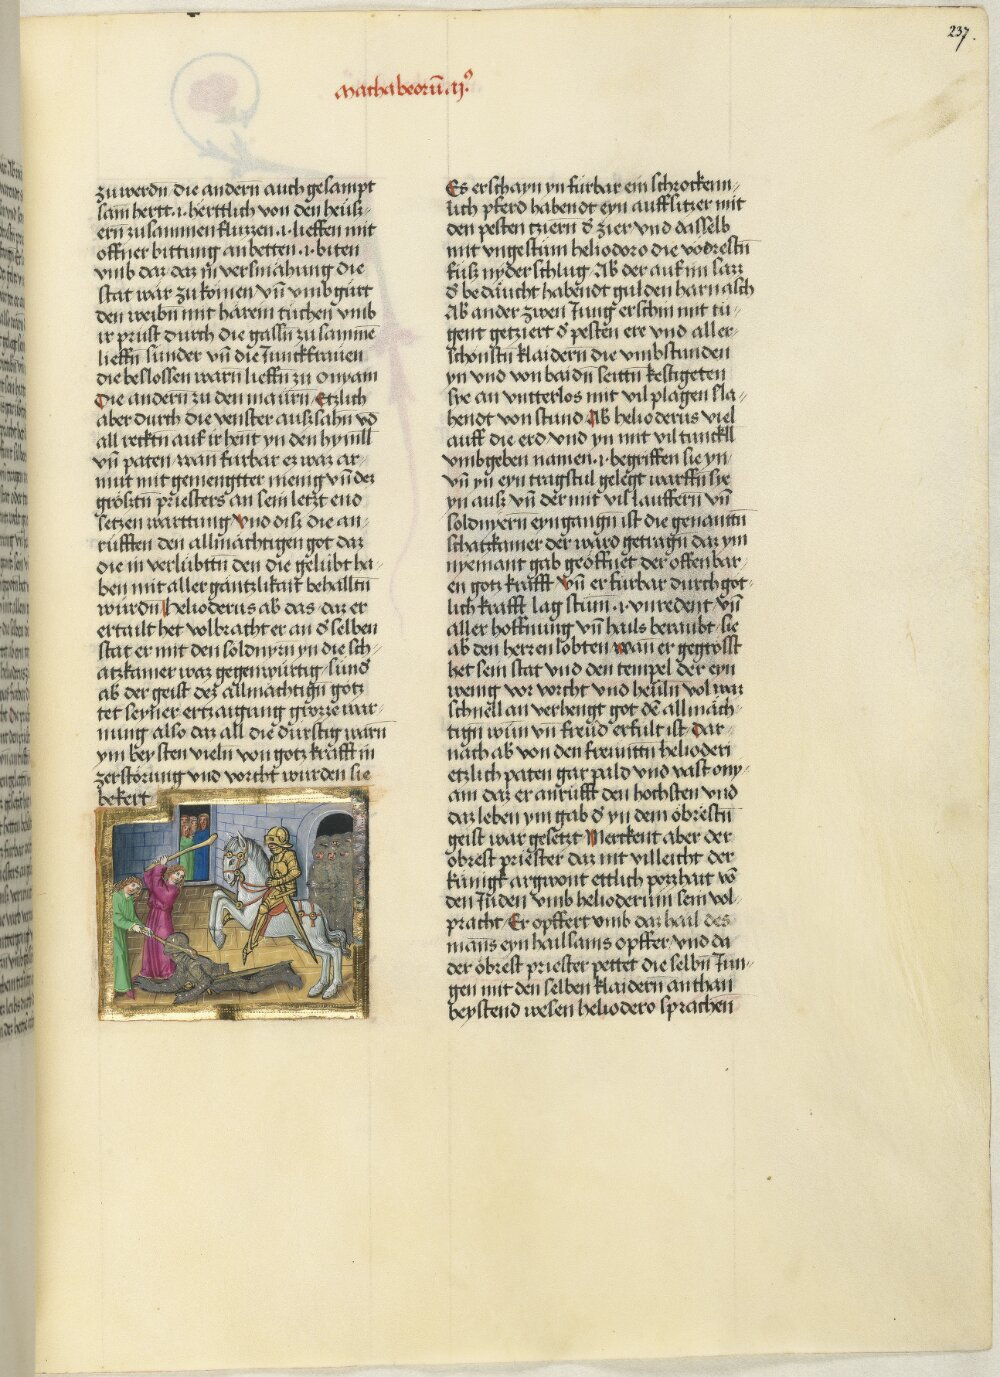 237.
Machabeorū .ij.
zu werdn die andern auch gesampt
sam hertt .i. herttlich von den heüs-
ern zusammen fluzzen .i. lieffen mit
offner bittung anbetten .i. biten
vmb daz daz in versmähung die
stat war zu komen vn̄ vmb gürt
den weibn mit härein tüchen vmb
ir prust durch die gassn zu samme
lieffn sunder vn̄ die Junckfrauen
die beslossen warn lieffn zu Onyam
Die andern zu den maürn Etzlich
aber durch die venster auss sahn vō
all recktn auf ir hent yn den hymll
vn̄ paten wan fürbar er waz ar-
mut mit gemengtter menig vn̄ dez
gröstn priesters an sein letzt end
setzen warttung Vnd diss die an-
rüfften den allmächtigen got daz
die in verlübttn den die gelübt ha-
ben mit aller gäntzlikait behalltn
würdn Helioderus ab das daz er
ertailt het volbracht er an d selben
stat er mit den soldnyrn yn die sch-
atzkamer waz gegenwürtig sund
ab der geist dez allmächtign gotz
tet seyner ertzaigung grozze war-
nung also daz all die dürstig warn
ym bey sten vieln von gotz krafft in
zerstörung vnd vorcht wurden sie
bekert
Es erschayn yn fürbar ein schrockenn-
lich pferd habendt eyn auffsitzer mit
den pesten tziern d zier vnd dasselb
mit vngestüm heliodoro die vodrestn
füss nyder schlug Ab der auf im sazz
d bedäucht habendt gulden harnasch
Ab ander zwen Jung erschin mit tu-
gent getziert d pesten ere vnd aller-
schönstn klaidern die vmbstunden
yn vnd von baidn seittn kestigeten
sye an vntterlos mit vil plagen sla-
hendt von stund Ab helioderus viel
auff die erd vnd yn mit vil tunckll
vmbgeben namen .i. begriffen sie yn
vn̄ yn eyn tragstul gelegt warffn sye
yn auss vn̄ der mit vil lauffern vn̄
soldnyern eyn gangn ist die genantn
schatzkamer der ward getragn daz ym
nyemant gab geöffnet der offenbar-
en gotz krafft Vn̄ er fürbar durch got-
lich krafft lag stum .i. vnredent vn̄
aller hoffnung vn̄ hails beraubt sie
ab den herren lobten wan er gegrösst
het sein stat vnd den tempel der eyn
wenig vor vorcht vnd heüln vol waz
schnell an verhengt got dē allmäch-
tign wun vn̄ freüd erfült ist Dar-
nach ab von den freuntn helioderi
etzlich paten gar pald vnd vast ony-
am daz er anrüfft den höchsten vnd
daz leben ym gab d yn dem öbrestn
geist war gesetzt Merckent aber der
öbrest priester daz nit villeicht der
künigk argwont ettlich porzhait vō
den Juden vmb helioderum sein vol-
pracht Er opffert vmb daz hail des
mans eyn hailsams opffer vnd da
der öbrest priester pettet die selbn Jun-
gen mit den selben klaidern anthan
beystend wesen heliodero sprachen